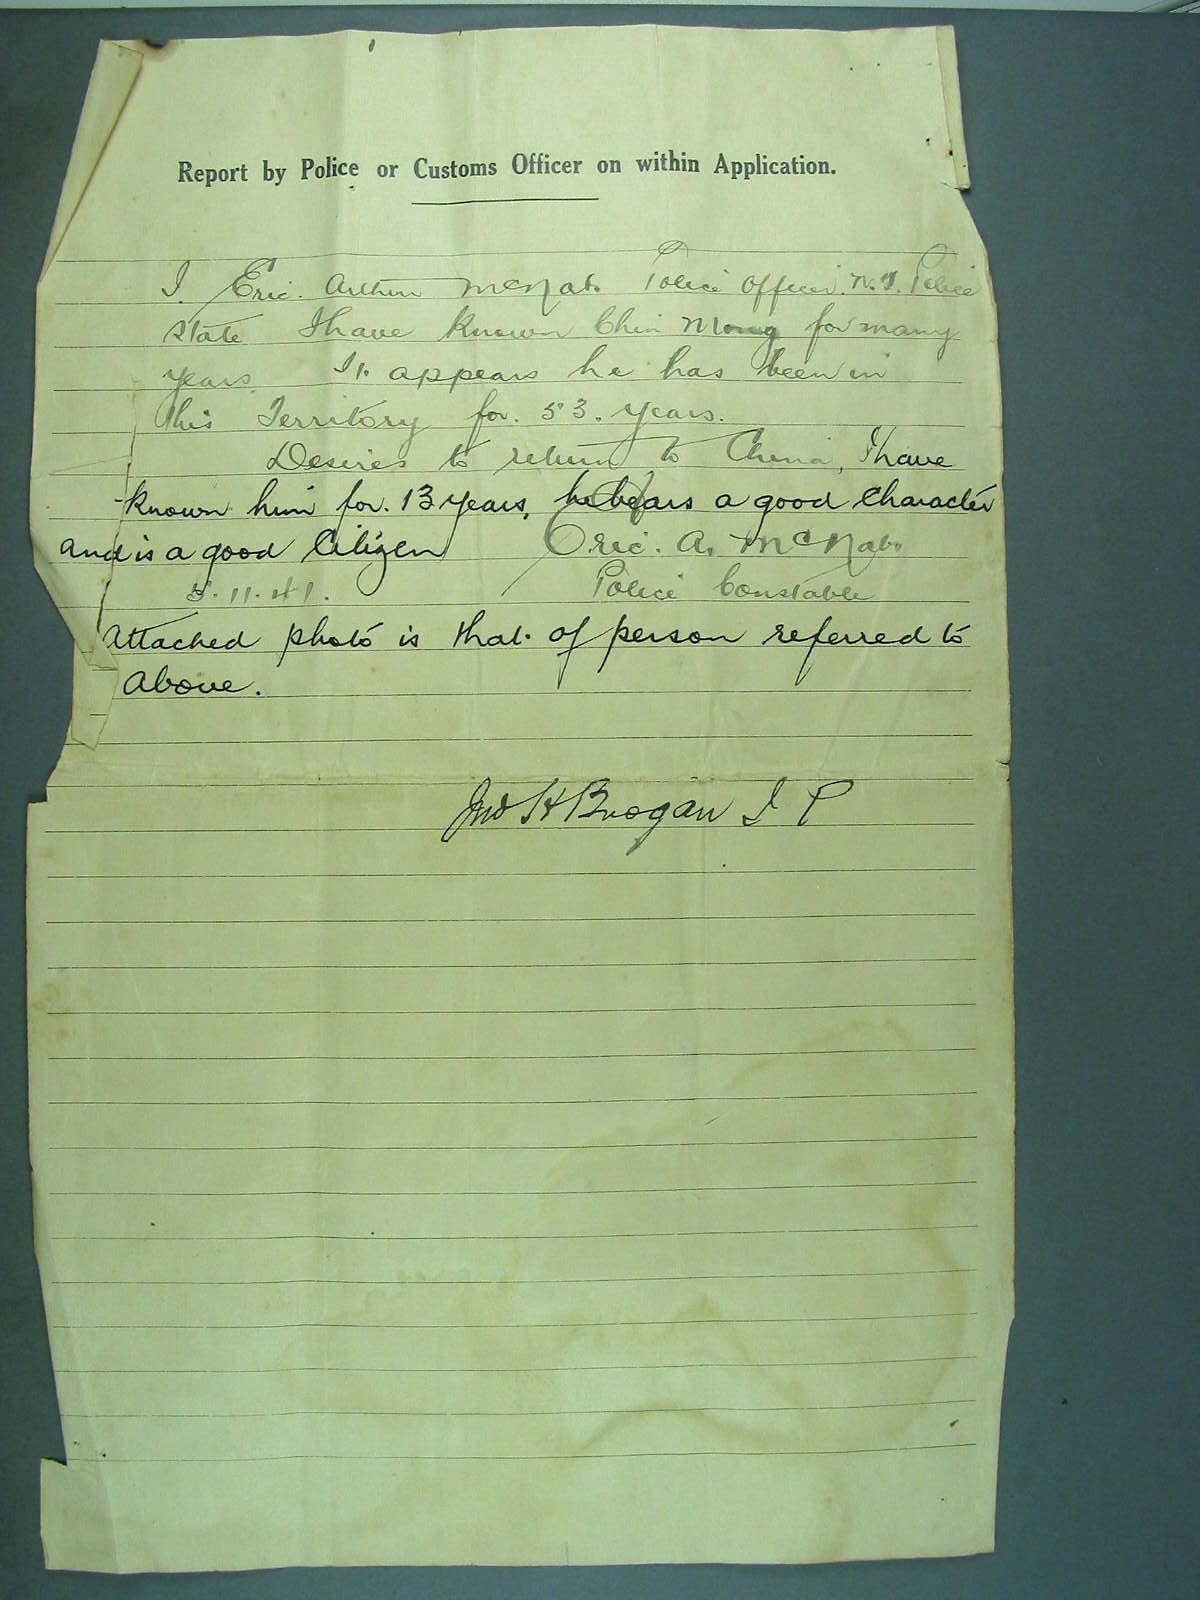 Report by Police or Customs Officer on within Application.
I. Eric. Arthur McNab. Police Officer. N.T. Police
state I have known Chin Mong for many
years It. appears he has been in
this Territory for. 53. years.
Desires to return to China, I have
known him for. 13 years, he bears a good character
and is a good Citizen Eric. A. McNab.
5.11.41. Police Constable
Attached photo is that. of person referred to
above.
Jno H Brogan J P